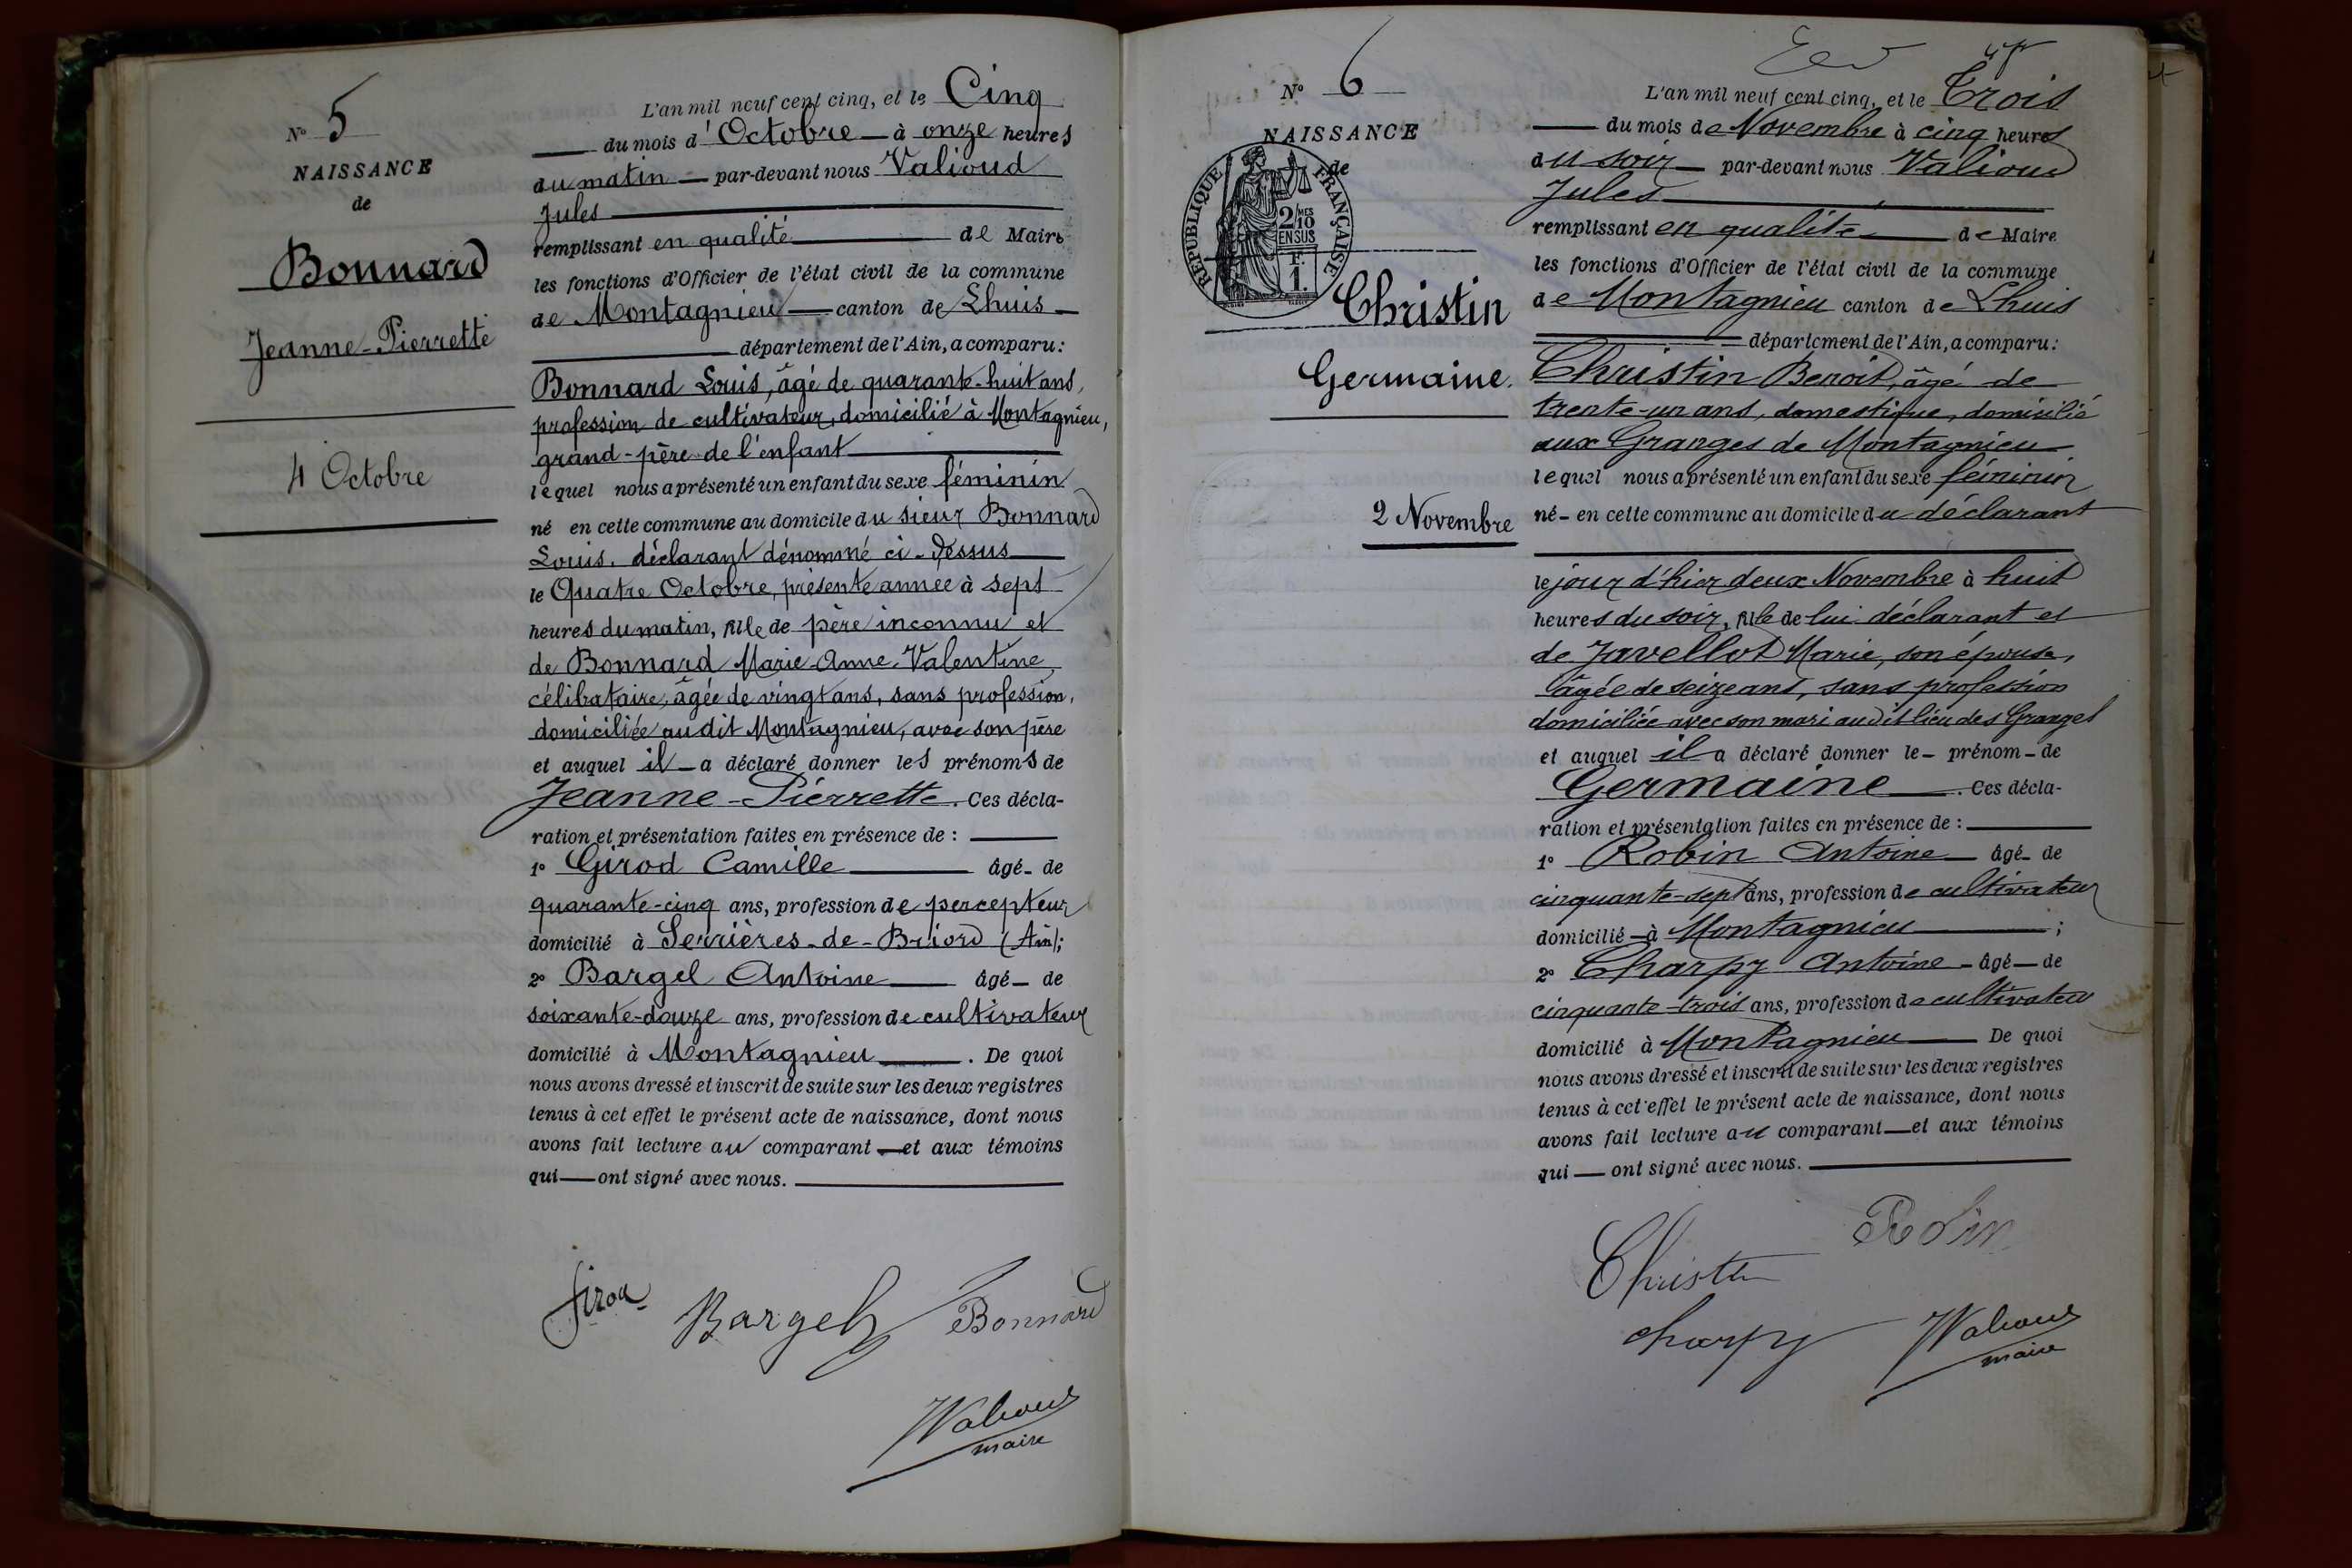 N° 5
NAISSANCE
de
Bonnard
Jeanne-Pierrette
4 Octobre
L'an mil neuf cent cinq, et le Cinq
du mois d'Octobre — à onze heures
du matin — par-devant nous Valioud
Jules
remplissant en qualité de Maire
les fonctions d'Officier de l'état civil de la commune
de Montagnieu — canton de Lhuis —
département de l'Ain, a comparu :
Bonnard Louis, âgé de quarante-huit ans,
profession de cultivateur, domicilié à Montagnieu,
grand-père de l'enfant
lequel nous a présenté un enfant du sexe féminin
né en cette commune au domicile du sieur Bonnard
Louis, déclarant dénommé ci-dessus
le Quatre Octobre, présente année à sept
heures du matin, fille de père inconnu et
de Bonnard Marie-Anne-Valentine,
célibataire, âgée de vingt ans, sans profession,
domiciliée au dit Montagnieu, avec son père
et auquel il — a déclaré donner les prénoms de
Jeanne-Pierrette. Ces décla-
ration et présentation faites en présence de :
1° Girod Camille âgé - de
quarante-cinq ans, profession de percepteur
domicilié à Serrières-de-Briord (Ain);
2° Bargel Antoine âgé - de
soixante-douze ans, profession de cultivateur
domicilié à Montagnieu. De quoi
nous avons dressé et inscrit de suite sur les deux registres
tenus à cet effet le présent acte de naissance, dont nous
avons fait lecture au comparant — et aux témoins
qui — ont signé avec nous.
Girod Bargel Bonnard
JValioud
maire
N° 6
NAISSANCE
de
RÉPUBLIQUE FRANÇAISE
2/10 MES
EN SUS
F.
1.
Christin
Germaine.
2 Novembre
L'an mil neuf cent cinq, et le Trois
du mois de Novembre à cinq heures
du soir — par-devant nous Valioud
Jules
remplissant en qualité de Maire
les fonctions d'Officier de l'état civil de la commune
de Montagnieu canton de Lhuis
département de l'Ain, a comparu :
Christin Benoit, âgé de
trente-un ans, domestique, domicilié
aux Granges de Montagnieu
lequel nous a présenté un enfant du sexe féminin
né - en cette commune au domicile du déclarant
le jour d'hier deux Novembre à huit
heures du soir, fille de lui déclarant et
de Javellot Marie, son épouse,
âgée de seize ans, sans profession
domiciliée avec son mari au dit lieu des Granges
et auquel il a déclaré donner le - prénom - de
Germaine. Ces décla-
ration et présentation faites en présence de :
1° Robin Antoine âgé - de
cinquante-sept ans, profession de cultivateur
domicilié - à Montagnieu ;
2° Charpy Antoine - âgé - de
cinquante-trois ans, profession de cultivateur
domicilié à Montagnieu De quoi
nous avons dressé et inscrit de suite sur les deux registres
tenus à cet effet le présent acte de naissance, dont nous
avons fait lecture au comparant — et aux témoins
qui — ont signé avec nous.
Robin
Christin
Charpy JValioud
maire